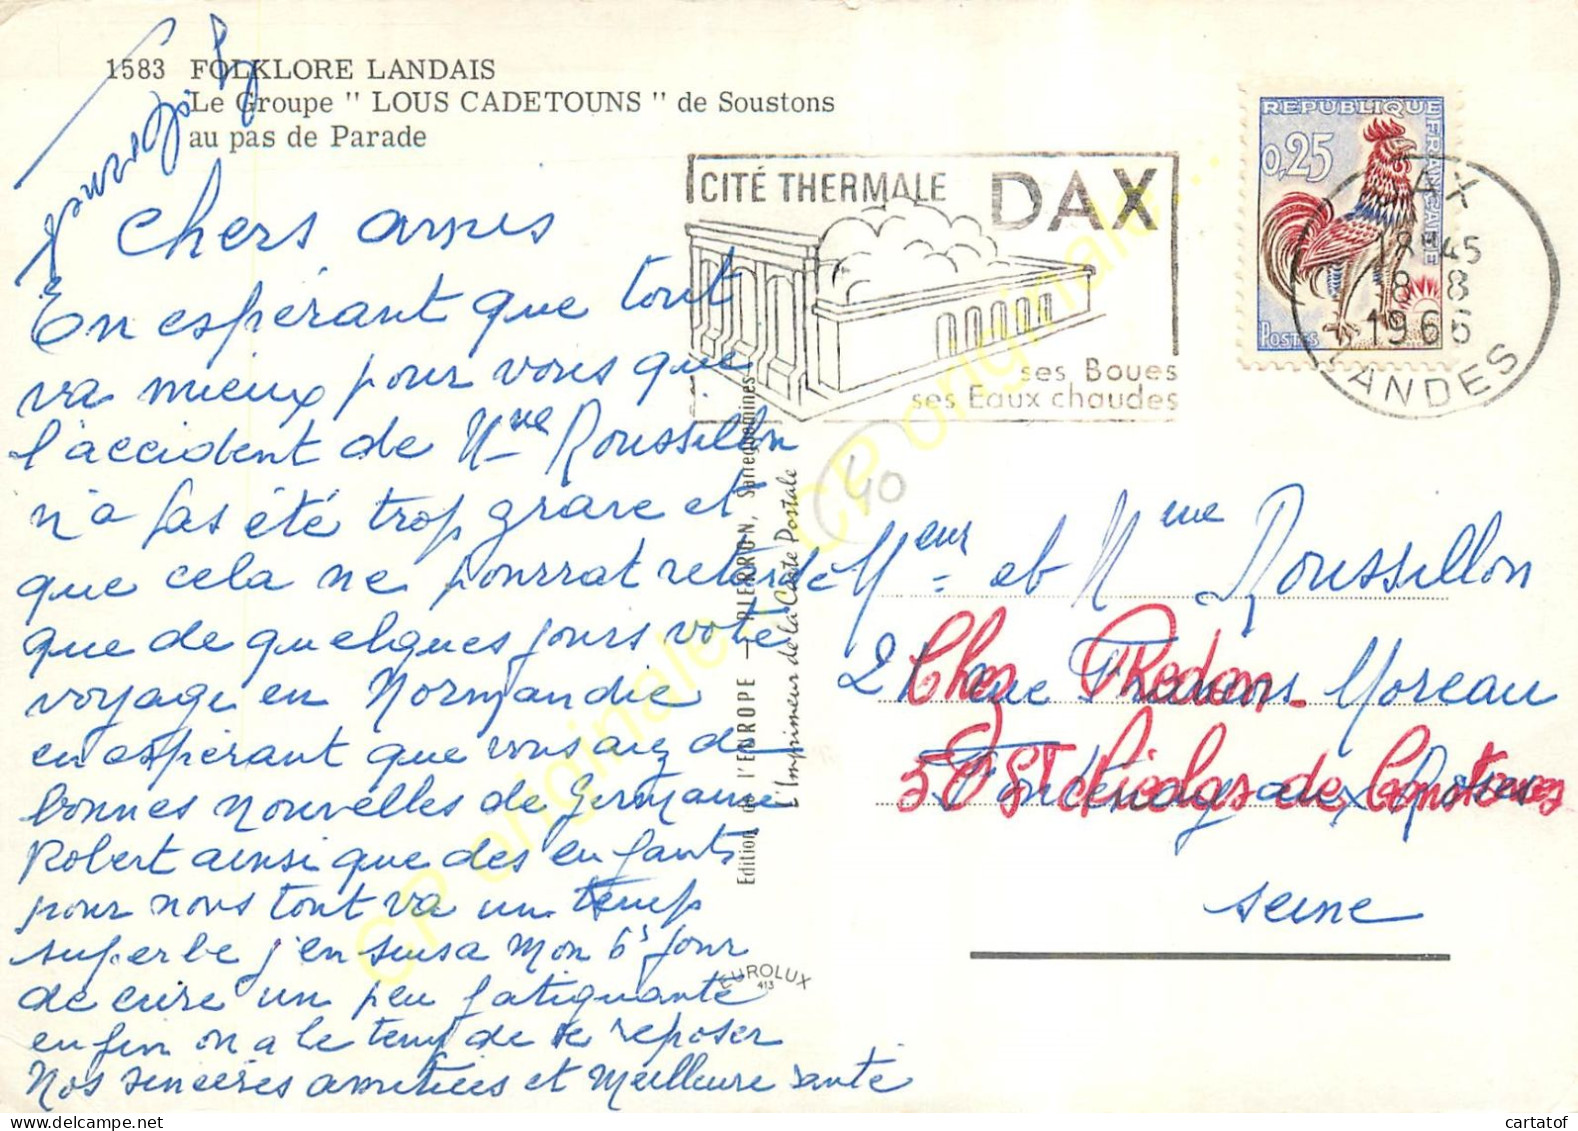 1583 FOLKLORE LANDAIS
Le Groupe " LOUS CADETOUNS " de Soustons
au pas de Parade
CITÉ THERMALE DAX
ses Boues
ses Eaux chaudes
REPUBLIQUE FRANÇAISE
0,25
POSTES
DAX
18H45
8-8
1966
LANDES
Chers amis
En espérant que tout
va mieux pour vous que
l'accident de Mme Roussillon
n'a pas été trop grave et
que cela ne pourrat retardé
que de quelques jours votre
voyage en Normandie
en espérant que vous aiez de
bonnes nouvelles de Germaine
Robert ainsi que des enfants
pour nous tout va un temps
superbe j'en suis a mon 6s jour
de cure un peu fatiguante
enfin on a le temp de se reposer
Nos sincères amitiées et meilleure santé
Edition de l'EUROPE — PIERRON, Sarreguemines
L'Imprimeur de la Carte Postale
EUROLUX
413
40
Meur et Mme Roussillon
21 rue Moreau
Fontenay aux Roses
Seine
Chez
50 St Nicolas de
CP originale
cartatof